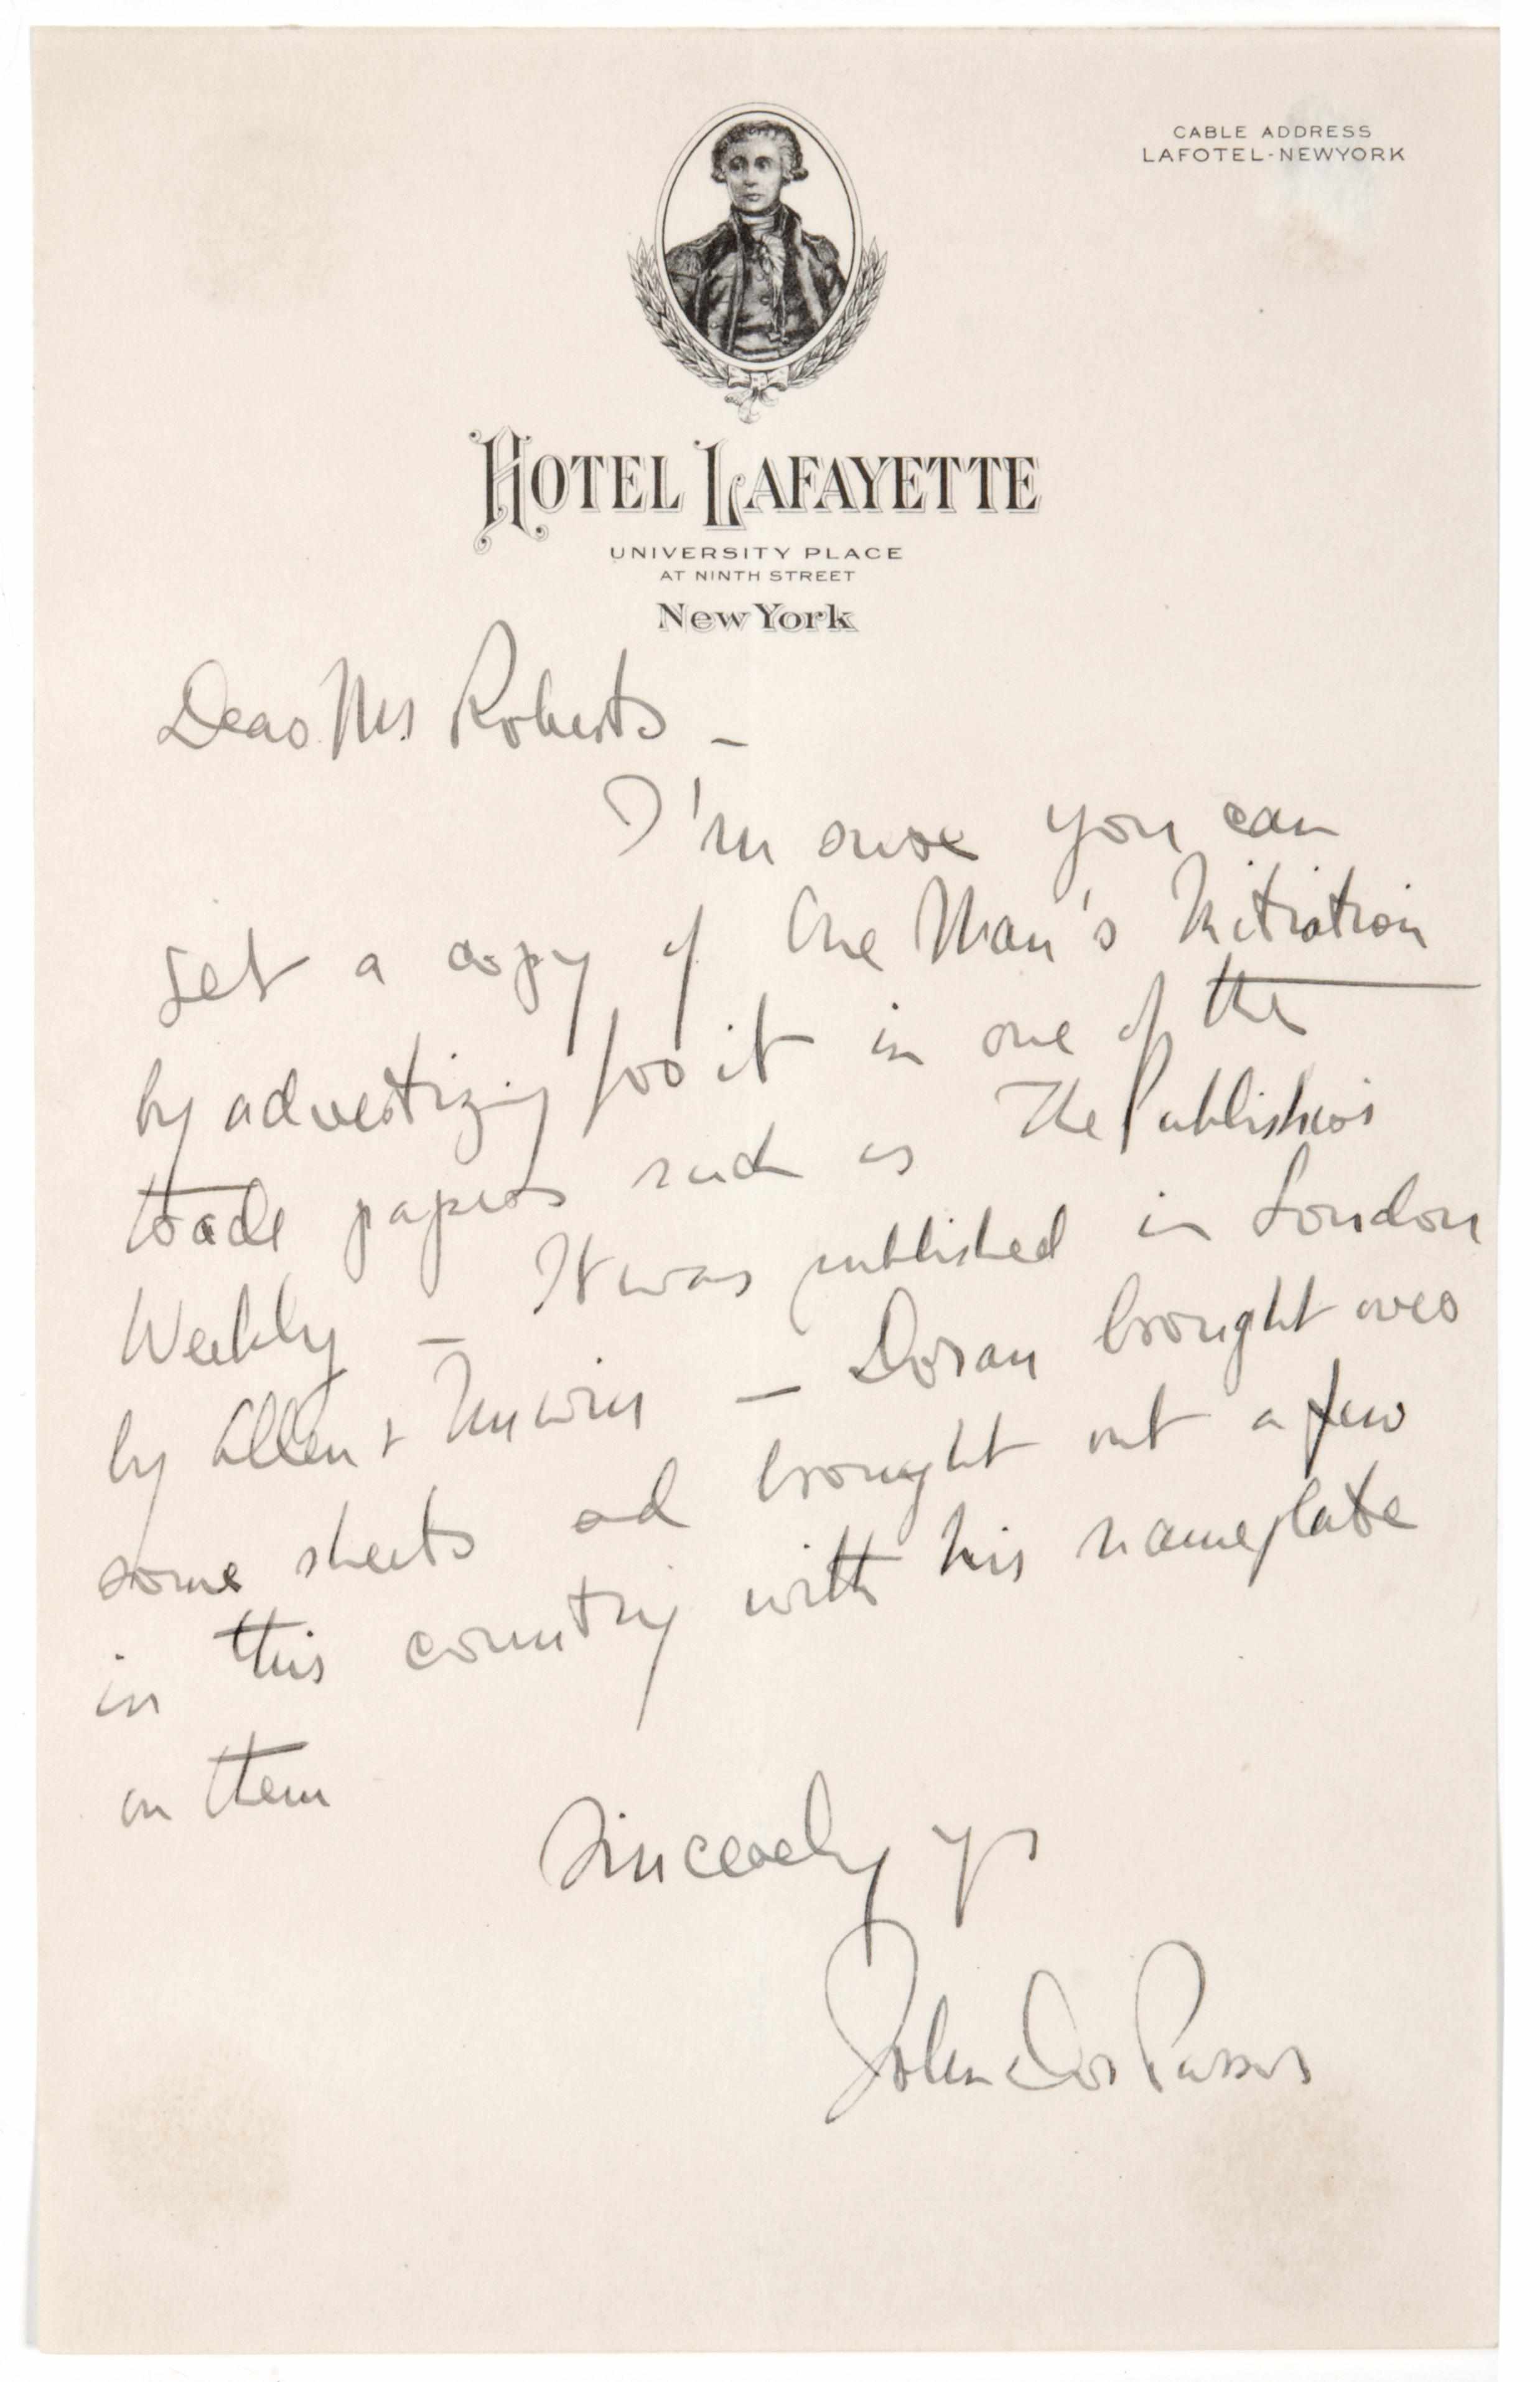 CABLE ADDRESS
LAFOTEL-NEWYORK
HOTEL LAFAYETTE
UNIVERSITY PLACE
AT NINTH STREET
New York
Dear Mrs Roberts –
I'm sure you can
get a copy of One Man's Initiation
by advertizing for it in one of the
trade papers such as The Publishers
Weekly – It was published in London
by Allen + Unwin – Doran brought over
some sheets and brought out a few
in this country with his nameplate
on them
Sincerely yrs
John Dos Passos